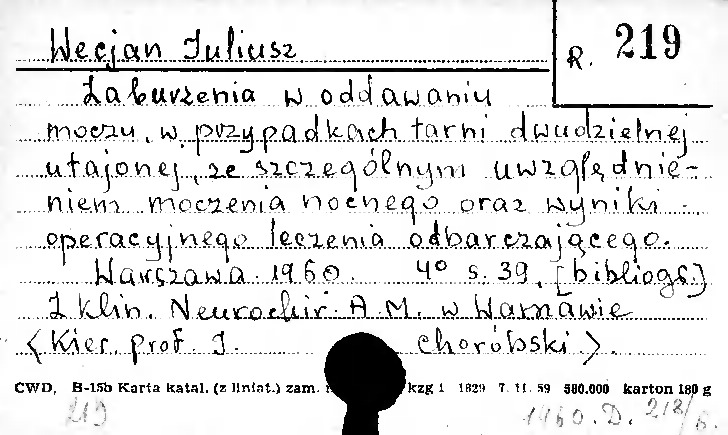 Wecjan Juliusz
R. 219
Zaburzenia w oddawaniu
moczu w przypadkach tarni dwudzielnej
utajonej, ze szczególnym uwzględnie-
niem moczenia nocnego oraz wyniki
operacyjnego leczenia odbarczającego.
Warszawa 1960. 4° s. 39, [bibliogr.]
Z Klin. Neurochir. A.M. w Warszawie
<Kier. prof. J. Choróbski>.
CWD, B-15b Karta katal. (z liniat.) zam. kzg 1 1829 7. 11. 59 580.000 karton 180 g
219 1960. D. 218/6.